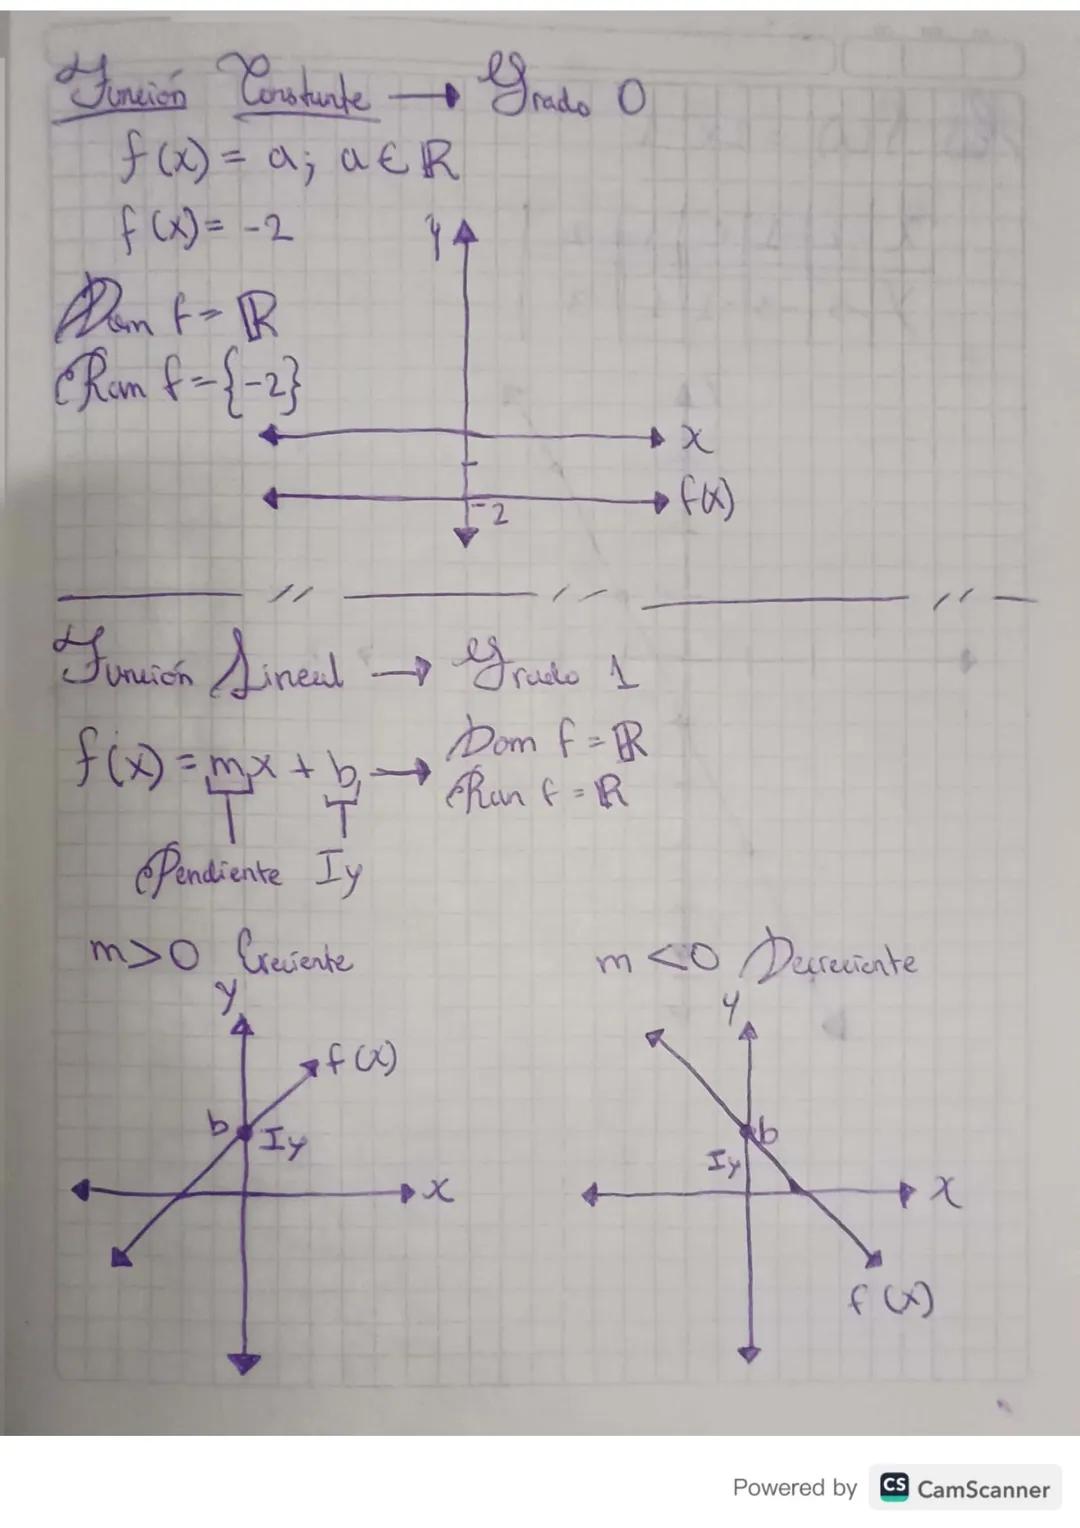 Función Constante → Grado 0
f(x) = a; a ∈ ℝ
f(x) = -2
y
Dom f = ℝ
Ran f = {-2}
x
f(x)
-2
Función Lineal → Grado 1
f(x) = mx + b →
Dom f = ℝ
Ran f = ℝ
Pendiente Iy
m>0 Creciente
m<0 Decreciente
y
f(x)
b
Iy
x
y
b
Iy
x
f(x)
Powered by CS CamScanner